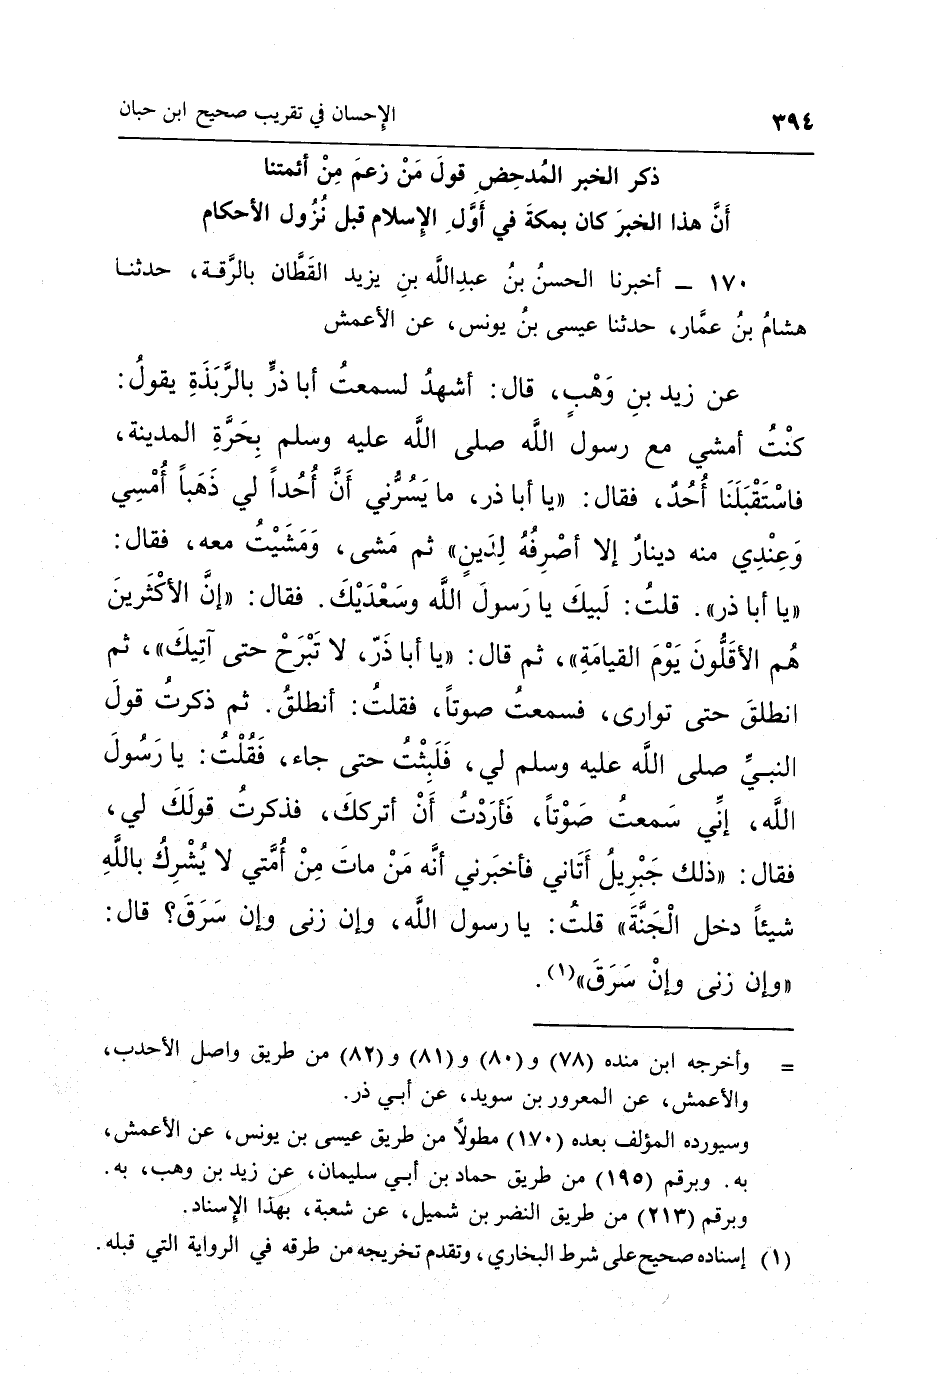 ٣٩٤ الإحسان في تقريب صحيح ابن حبان
ذكر الخبر المُدحِضِ قولَ مَنْ زعمَ مِنْ أئمتنا
أَنَّ هذا الخبرَ كان بمكةَ في أَوَّلِ الإسلام قبل نُزُول الأحكام
١٧٠ ــ أخبرنا الحسنُ بنُ عبدِاللَّه بنِ يزيد القَطَّان بالرَّقة، حدثنا
هشامُ بنُ عمَّار، حدثنا عيسى بنُ يونس، عن الأعمش
عن زيد بنِ وَهْبٍ، قال: أشهدُ لسمعتُ أبا ذرٍّ بالرَّبَذَةِ يقولُ:
كنْتُ أمشي مع رسول اللَّه صلى اللَّه عليه وسلم بِحَرَّةِ المدينة،
فاسْتَقْبَلَنَا أُحُدٌ، فقال: «يا أبا ذر، ما يَسُرُّني أَنَّ أُحُداً لي ذَهَباً أُمْسِي
وَعِنْدِي منه دينارٌ إلا أصْرِفُهُ لِدَينٍ» ثم مَشى، وَمَشَيْتُ معه، فقال:
«يا أبا ذر». قلتُ: لَبيكَ يا رَسولَ اللَّه وسَعْدَيْكَ. فقال: «إنَّ الأكْثَرينَ
هُم الأقَلُّونَ يَوْمَ القيامَةِ»، ثم قال: «يا أبا ذَرّ، لا تَبْرَحْ حتى آتِيكَ»، ثم
انطلقَ حتى توارى، فسمعتُ صوتاً، فقلتُ: أنطلقُ. ثم ذكرتُ قولَ
النبيِّ صلى اللَّه عليه وسلم لي، فَلَبِثْتُ حتى جاء، فَقُلْتُ: يا رَسُولَ
اللَّه، إنِّي سَمعتُ صَوْتاً، فَأرَدْتُ أَنْ أتركَكَ، فذكرتُ قولَكَ لي،
فقال: «ذلك جَبْرِيلُ أَتَاني فأخبَرني أنَّه مَنْ ماتَ مِنْ أُمَّتي لا يُشْرِكُ باللَّهِ
شيئاً دخل الْجَنَّةَ» قلتُ: يا رسول اللَّه، وإن زنى وإن سَرَقَ؟ قال:
«وإن زنى وإنْ سَرَقَ»(١).
= وأخرجه ابن منده (٧٨) و (٨٠) و (٨١) و (٨٢) من طريق واصل الأحدب،
والأعمش، عن المعرور بن سويد، عن أبي ذر.
وسيورده المؤلف بعده (١٧٠) مطولاً من طريق عيسى بن يونس، عن الأعمش،
به. وبرقم (١٩٥) من طريق حماد بن أبي سليمان، عن زيد بن وهب، به.
وبرقم (٢١٣) من طريق النضر بن شميل، عن شعبة، بهذا الإسناد.
(١) إسناده صحيح على شرط البخاري، وتقدم تخريجه من طرقه في الرواية التي قبله.